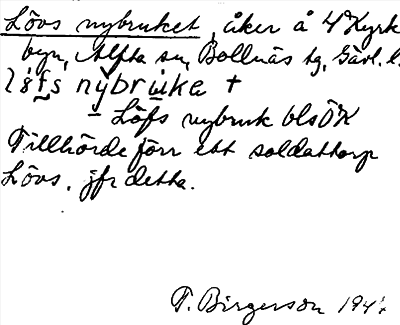 Lövs nybruket, åker å 4° Kyrk
byn, Alfta sn, Bollnäs tg, Gävl. l.
löfs nybruka +
– Löfs nybruk blsÖK
Tillhörde förr ett soldattorp
Lövs, jfr detta.
T. Birgerson